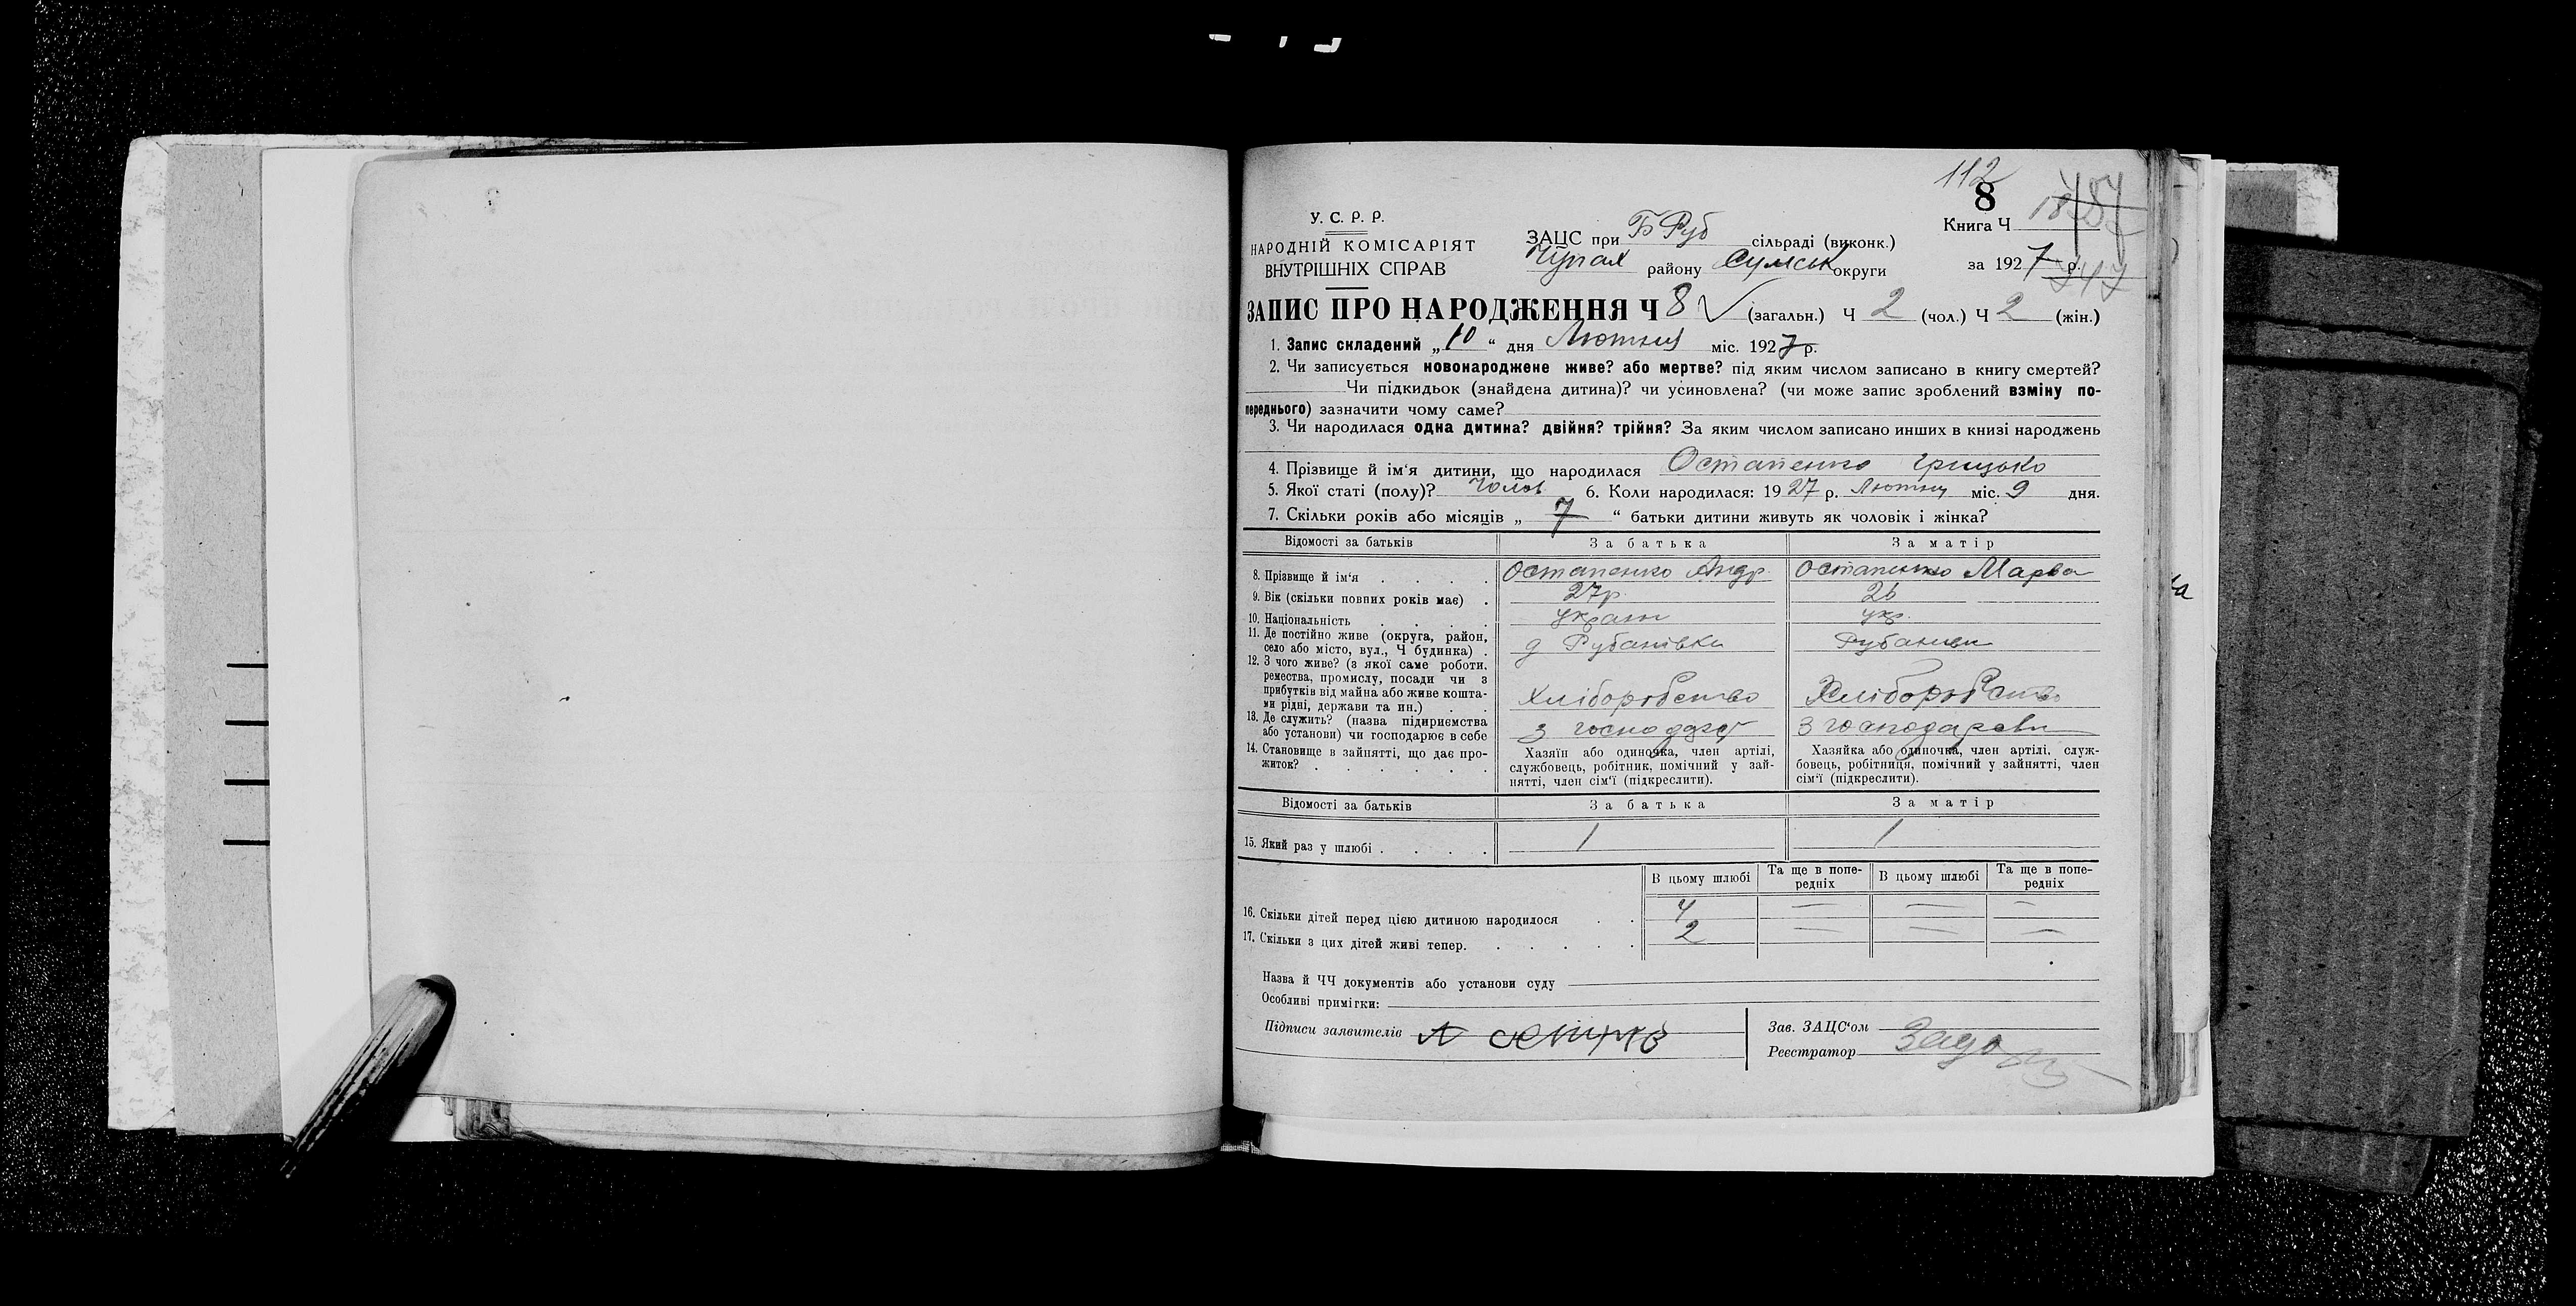 112
8
У. С. Р. Р.
НАРОДНІЙ КОМІСАРІЯТ
ВНУТРІШНІХ СПРАВ
ЗАЦС при Б Руб сільраді (виконк.)
району Сумськ округи
Книга Ч
за 1927 р.
ЗАПИС ПРО НАРОДЖЕННЯ Ч 8 (загальн.) Ч 2 (чол.) Ч 2 (жін.)
1. Запис складений „10“ дня Лютня міс. 1927 р.
2. Чи записується новонароджене живе? або мертве? під яким числом записано в книгу смертей?
Чи підкидьок (знайдена дитина)? чи усиновлена? (чи може запис зроблений взміну по-
переднього) зазначити чому саме?
3. Чи народилася одна дитина? двійня? трійня? За яким числом записано инших в книзі народжень
4. Прізвище й ім‘я дитини, що народилася Остапенко Грицько
5. Якої статі (полу)? Чолов 6. Коли народилася: 1927 р. Лютня міс. 9 дня.
7. Скільки років або місяців „ 7 “ батьки дитини живуть як чоловік і жінка?
Відомості за батьків За батька За матір
8. Прізвище й ім‘я Остапенко Андр. Остапенко Марва
9. Вік (скільки повних років має) 27р. 26
10. Національність україн укр.
11. Де постійно живе (округа, район,
село або місто, вул., Ч будинка) д Рубанівка Рубанівка
12. З чого живе? (з якої саме роботи,
ремества, промислу, посади чи з
прибутків від майна або живе кошта-
ми рідні, держави та ин.) Хліборобство Хліборобство
13. Де служить? (назва підприємства
або установи) чи господарює в себе З З господарсви
14. Становище в зайнятті, що дає про-
житок?
Хазяїн або одиночка, член артілі,
службовець, робітник, помічний у зай-
нятті, член сім‘ї (підкреслити).
Хазяйка або одиночка, член артілі, служ-
бовець, робітниця, помічний у зайнятті, член
сім‘ї (підкреслити).
Відомості за батьків За батька За матір
15. Який раз у шлюбі 1 1
В цьому шлюбі Та ще в попе-редніх В цьому шлюбі Та ще в попе-редніх
16. Скільки дітей перед цією дитиною народилося 4 — — —
17. Скільки з цих дітей живі тепер. 2 — — —
Назва й ЧЧ документів або установи суду
Особливі примітки:
Підписи заявителів
Зав. ЗАЦС‘ом
Реєстратор